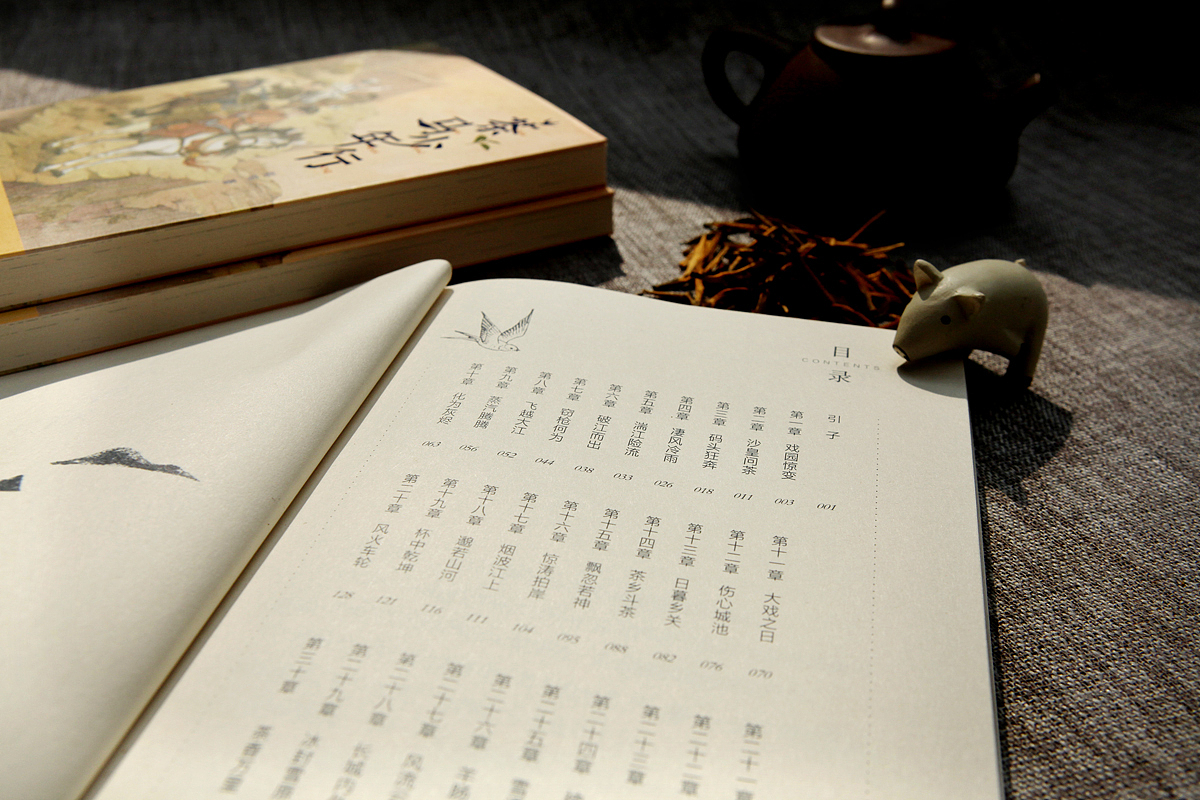 茶马少年行
目录
CONTENTS
引子 001
第一章 戏园惊变 003
第二章 沙皇问茶 011
第三章 码头狂奔 018
第四章 凄风冷雨 026
第五章 湍江险流 033
第六章 破江而出 038
第七章 窃枪何为 044
第八章 飞越大江 052
第九章 蒸汽腾腾 056
第十章 化为灰烬 063
第十一章 大戏之日 070
第十二章 伤心城池 076
第十三章 日暮乡关 082
第十四章 茶乡斗茶 088
第十五章 飘忽若神 095
第十六章 惊涛拍岸 104
第十七章 烟波江上 111
第十八章 邈若山河 116
第十九章 杯中乾坤 121
第二十章 风火车轮 128
第二十一章
第二十二章
第二十三章
第二十四章
第二十五章 雪
第二十六章 羊肠
第二十七章 风流
第二十八章 长城内
第二十九章 冰封雪原
第三十章 茶香万里